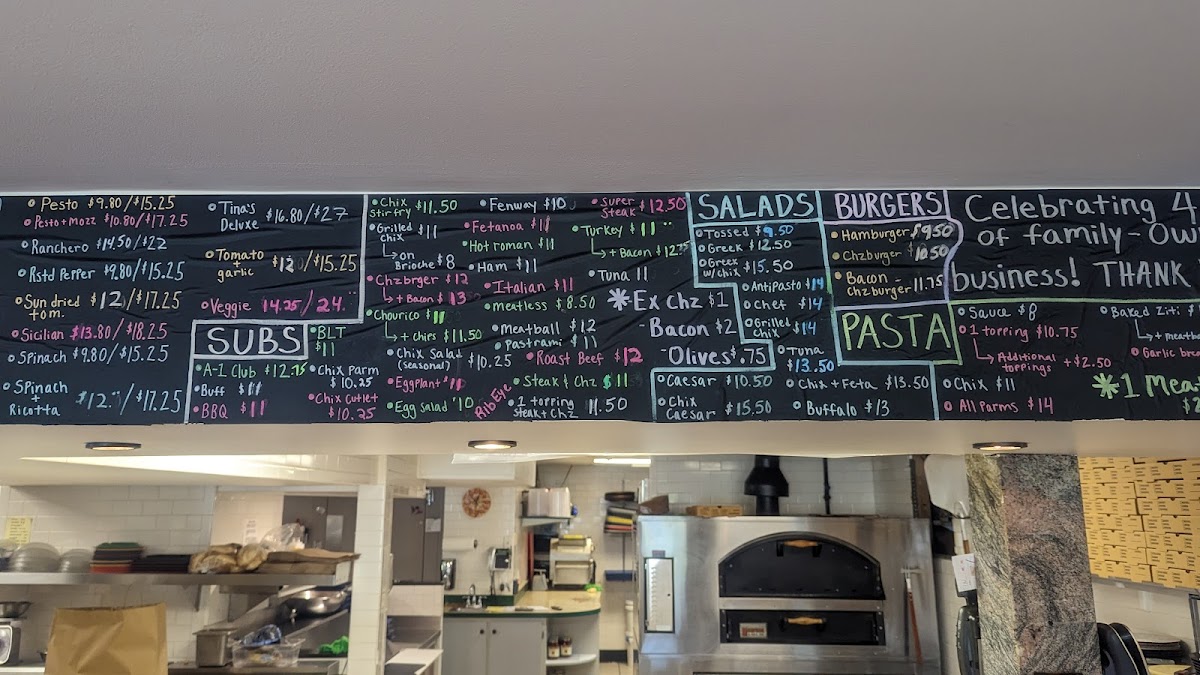 Pesto $9.80/$15.25
Pesto+Mozz $10.80/$17.25
Ranchero $14.50/$22
Rstd Pepper $9.80/$15.25
Sun dried tom. $12/$17.25
Sicilian $13.80/$18.25
Spinach $9.80/$15.25
Spinach
+
Ricotta $12.  /$17.25
Tina's
Deluxe $16.80/$27
Tomato
+
garlic $12 /$15.25
Veggie 14.25/24.
SUBS
BLT
$11
A-1 Club $12.75
Buff $11
BBQ $11
Chix Parm
$10.25
Chix Cutlet
$10.25
Chix
Stir fry $11.50
Grilled
chix $11
on
Brioche $8
Chzbrger $12
+ Bacon $13
Chourico $11
+ chips $11.50
Chix Salad
(seasonal) $10.25
Eggplant $11
Egg Salad $10
Fenway $10
Fetanoa $11
Hot roman $11
Ham $11
Italian $11
meatless $8.50
Meatball $12
Pastrami $11
Roast Beef $12
RibEye
Steak & Chz $11
1 topping
Steak+Chz 11.50
Super
Steak $12.50
Turkey $11
+ Bacon $12.75
Tuna 11
Ex Chz $1
- Bacon $2
- Olives $.75
SALADS
Tossed $9.50
Greek $12.50
Greek
w/chix $15.50
AntiPasto $14
Chef $14
Grilled
Chix $14
Tuna
$13.50
Caesar $10.50
Chix
Caesar $15.50
Chix + Feta $13.50
Buffalo $13
BURGERS
Hamburger $9.50
Chzburger 10.50
Bacon
Chzburger 11.75
PASTA
Celebrating 4
of family-Ow
business! THANK
Sauce $8
1 topping $10.75
Additional
toppings + $2.50
Chix $11
All Parms $14
Baked Ziti $
+ meatb
Garlic brea
1 Mea
$2